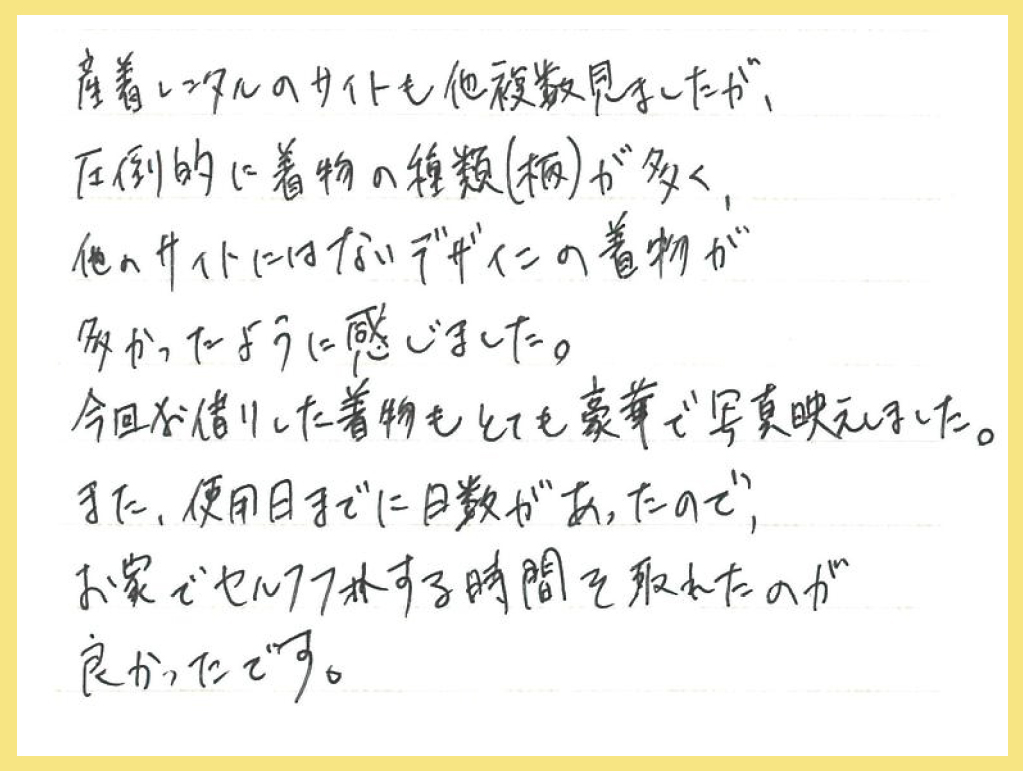 産着レンタルのサイトも他複数見ましたが、
圧倒的に着物の種類(柄)が多く、
他のサイトにはないデザインの着物が
多かったように感じました。
今回お借りした着物もとても豪華で写真映えしました。
また、使用日までに日数があったので、
お家でセルフフォトする時間も取れたのが
良かったです。